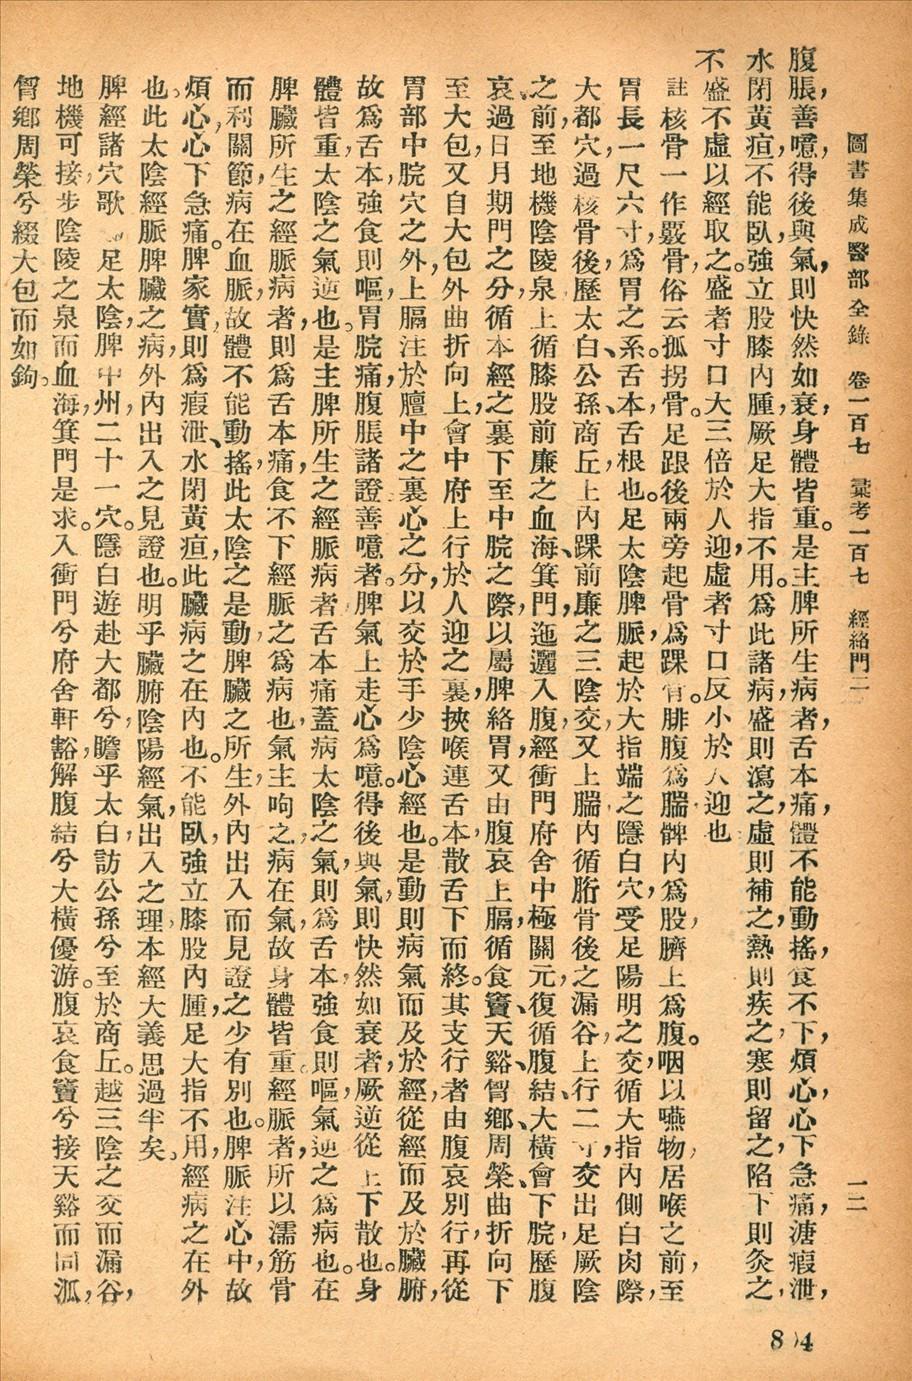 圖書集成醫部全錄 卷一百七 彙考一百七 經絡門二 一二
腹脹，善噫，得後與氣，則快然如衰，身體皆重。是主脾所生病者，舌本痛，體不能動搖，食不下，煩心，心下急痛，溏瘕泄，
水閉黃疸，不能臥，強立股膝內腫，厥足大指不用。爲此諸病，盛則瀉之，虛則補之，熱則疾之，寒則留之，陷下則灸之，
不盛不虛以經取之。盛者寸口大三倍於人迎，虛者寸口反小於人迎也
註 核骨一作覈骨，俗云孤拐骨。足跟後兩旁起骨，爲踝骨。腓腹爲腨，髀內爲股，臍上爲腹。咽以嚥物，居喉之前，至
胃長一尺六寸，爲胃之系。舌本，舌根也。足太陰脾脈，起於大指端之隱白穴，受足陽明之交，循大指內側白肉際，
大都穴，過核骨後，歷太白、公孫、商丘，上內踝前廉之三陰交，又上腨內循胻骨後之漏谷，上行二寸，交出足厥陰
之前，至地機陰陵泉，上循膝股前廉之血海、箕門，迤邐入腹，經衝門府舍中極關元，復循腹結、大橫會下脘，歷腹
哀，過日月期門之分，循本經之裏，下至中脘之際，以屬脾絡胃，又由腹哀上膈，循食竇、天谿、胷鄉、周榮，曲折向下
至大包，又自大包外曲折向上，會中府上行於人迎之裏，挾喉連舌本，散舌下而終。其支行者，由腹哀別行，再從
胃部中脘穴之外，上膈注於膻中之裏心之分，以交於手少陰心經也。是動則病氣而及於經，從經而及於臟腑，
故爲舌本強，食則嘔，胃脘痛，腹脹諸證善噫者。脾氣上走心爲噫。得後與氣，則快然如衰者，厥逆從上下散也。身
體皆重，太陰之氣逆也。是主脾所生之經脈病者，舌本痛，蓋病太陰之氣，則爲舌本強，食則嘔，氣逆之爲病也。在
脾臟所生之經脈病者，則爲舌本痛，食不下，經脈之爲病也，氣主呴之，病在氣，故身體皆重。經脈者，所以濡筋骨
而利關節，病在血脈，故體不能動搖，此太陰之是動，脾臟之所生，外內出入而見證之少有別也。脾脈注心中，故
煩心，心下急痛。脾家實，則爲瘕泄、水閉黃疸，此臟病之在內也。不能臥，強立膝股內腫，足大指不用，經病之在外
也。此太陰經脈脾臟之病，外內出入之見證也。明乎臟腑陰陽經氣，出入之理，本經大義思過半矣。
脾經諸穴歌 足太陰，脾中州，二十一穴。隱白遊赴大都兮，瞻乎太白，訪公孫兮。至於商丘。越三陰之交而漏谷，
地機可接步陰陵之泉而血海，箕門是求。入衝門兮府舍軒豁，解腹結兮大橫優游。腹哀食竇兮接天谿而同泒，
胷鄉周榮兮綴大包而如鉤。